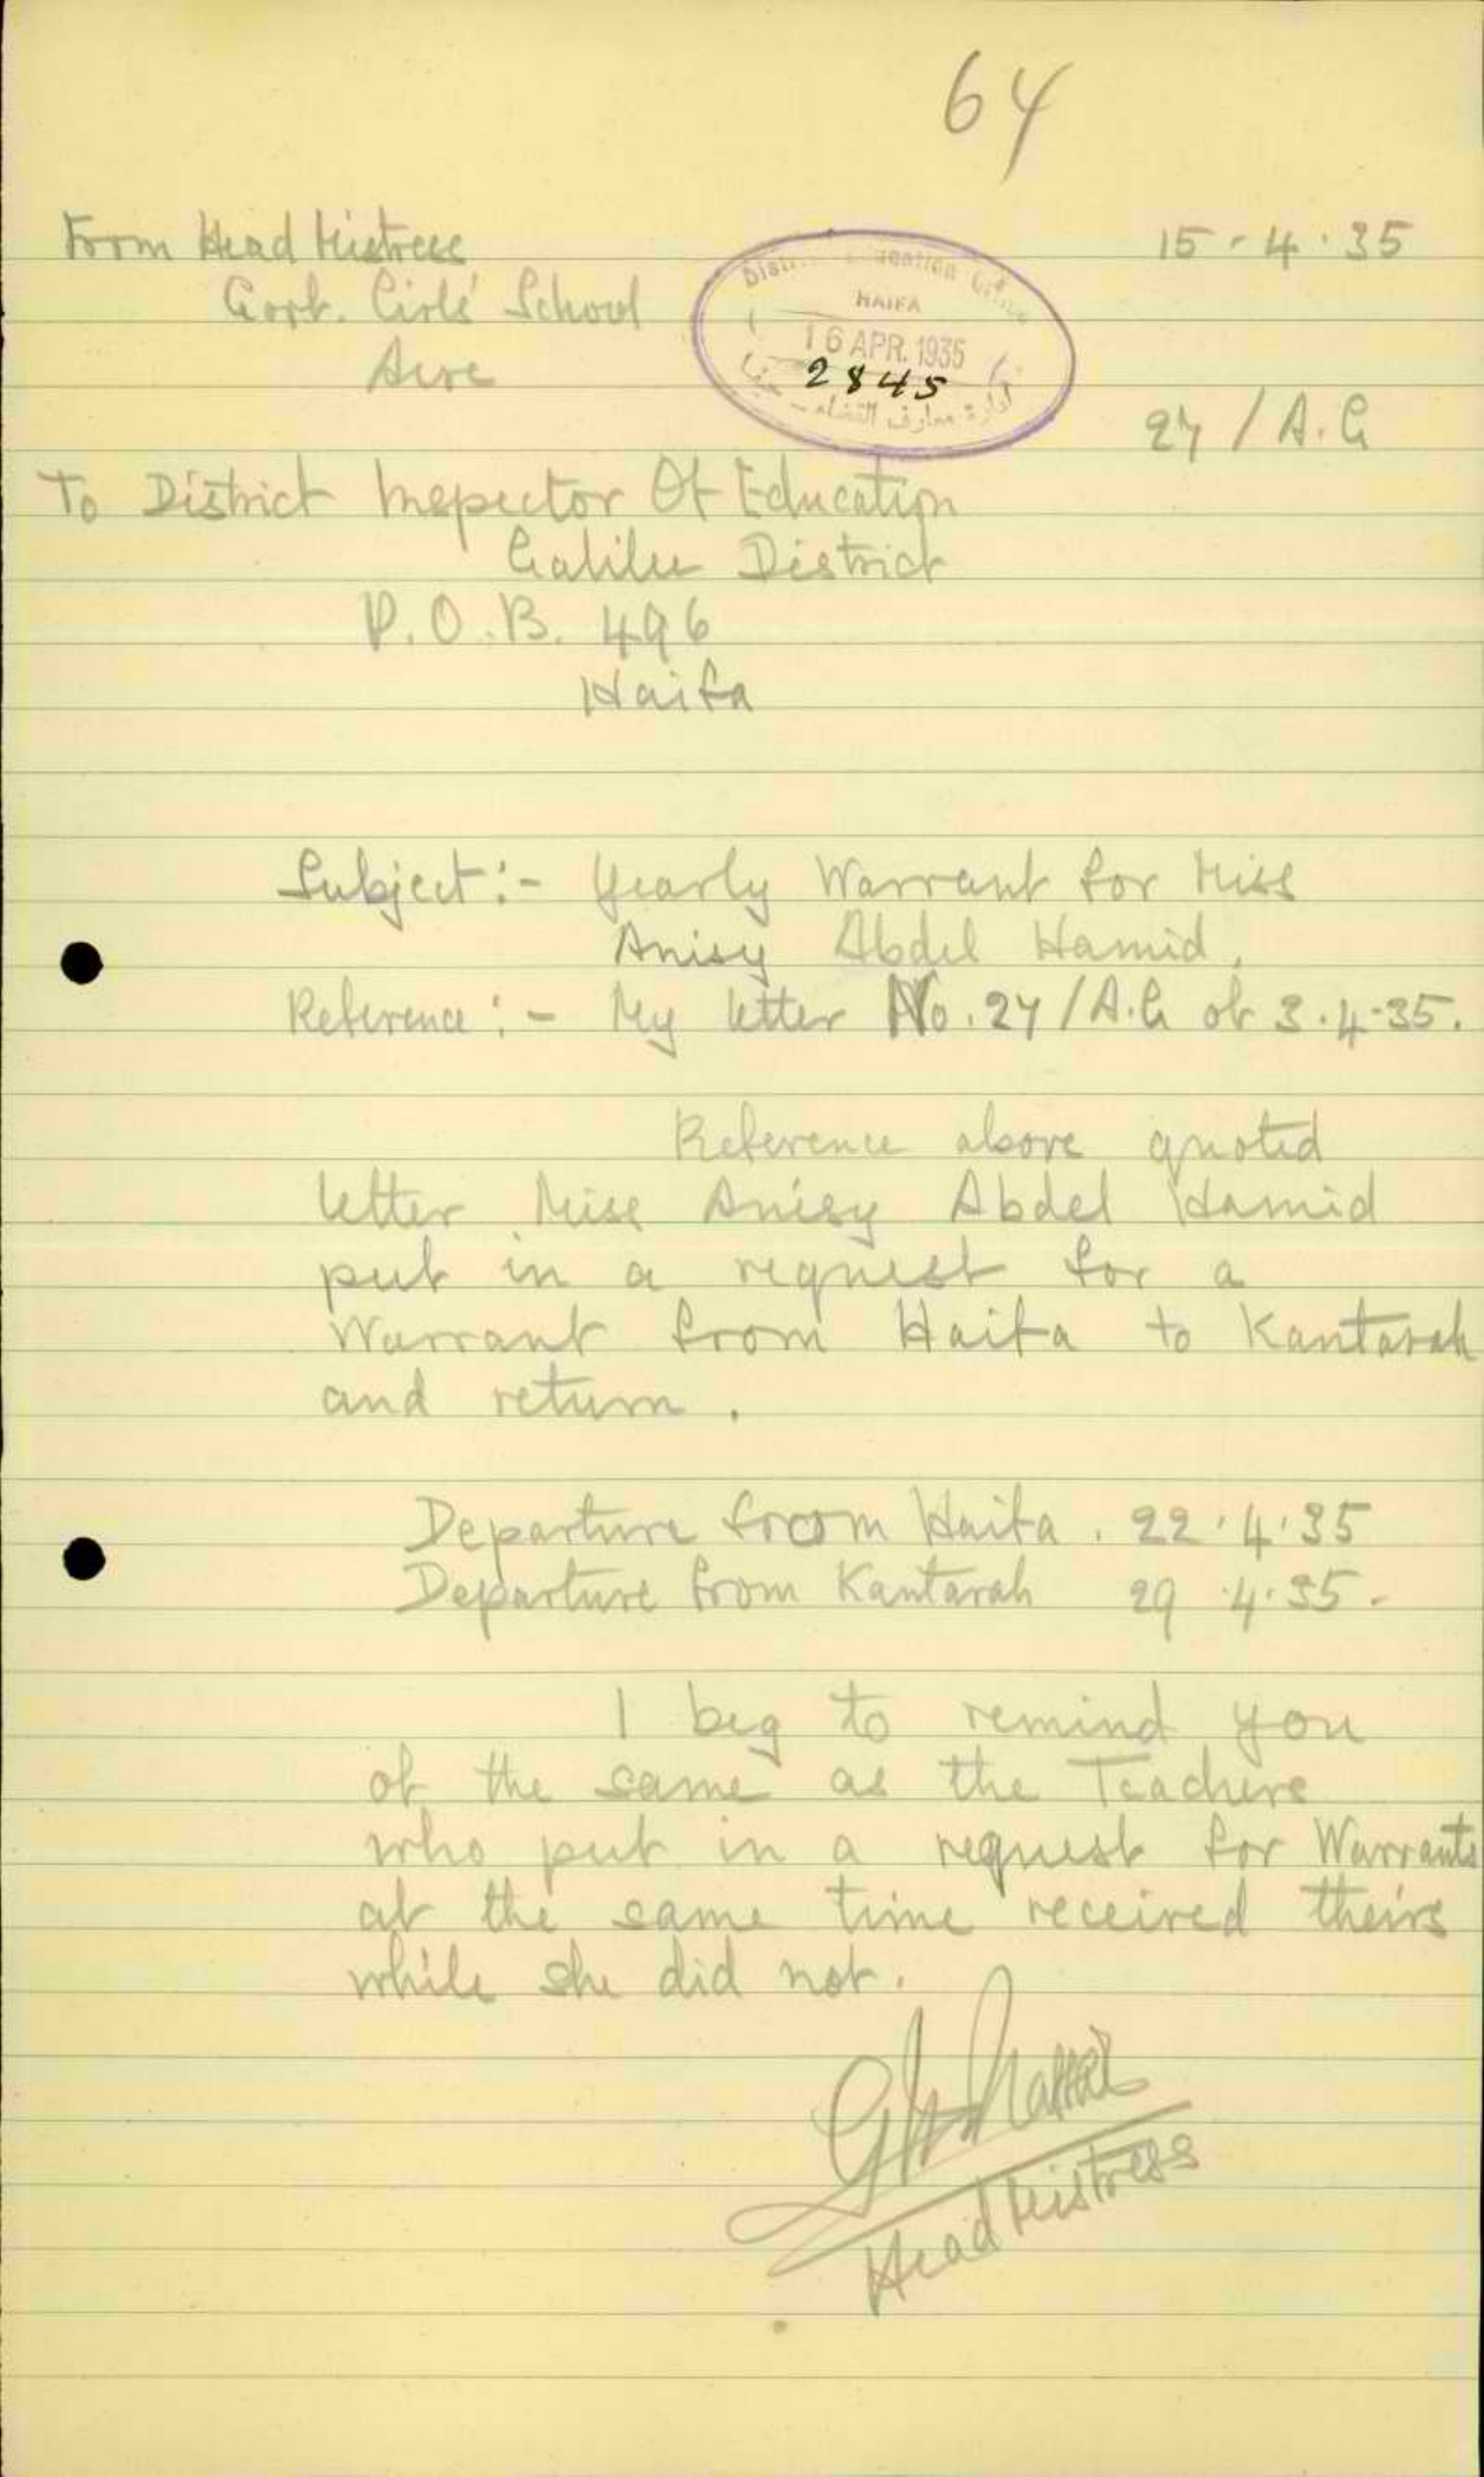 64
From Head Mistress
15-4.35
Govt. Girls' School
Acre
District Education Office
HAIFA
16 APR. 1935
2845
ادارة معارف القضاء - حيفا
27/A.G
To District Inspector Of Education
Galilee District
P.O.B. 496
Haifa
Subject:- Yearly Warrant for Miss
Anisy Abdel Hamid.
Reference:- My letter No. 27/A.G of 3.4-35.
Reference above quoted
letter Miss Anisy Abdel Hamid
put in a request for a
Warrant from Haifa to Kantarah
and return.
Departure from Haifa. 22.4.35
Departure from Kantarah 29.4.35-
I beg to remind you
of the same as the Teachers
who put in a request for Warrants
at the same time received theirs
while she did not.
Head Mistress